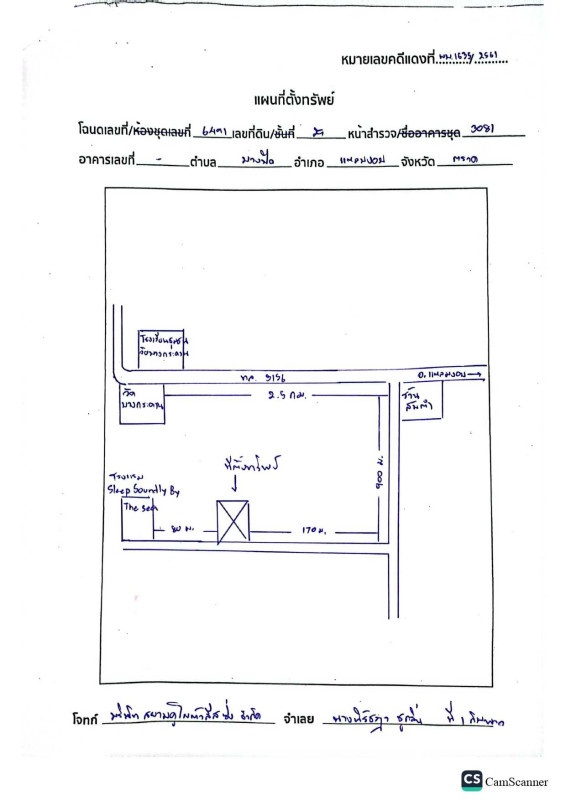 หมายเลขคดีแดงที่ ผบ.1635/2561
แผนที่ตั้งทรัพย์
โฉนดเลขที่/ห้องชุดเลขที่ 6491 เลขที่ดิน/ชั้นที่ หน้าสำรวจ/ชื่ออาคารชุด 3081
อาคารเลขที่ - ตำบล บางปิด อำเภอ แหลมงอบ จังหวัด ตราด
โรงเรียนชุมชน
วัดบางกระดาน
ทล. 3156
อ.แหลมงอบ →
วัด
บางกระดาน
2.5 กม.
ร้าน
ส้มตำ
900 ม.
ที่ตั้งทรัพย์
โรงแรม
Sleep Soundly By
The sea
80 ม.
170 ม.
โจทก์ บริษัท สยามคูโบต้าลีสซิ่ง จำกัด จำเลย ที่ 1 กับพวก
CS CamScanner